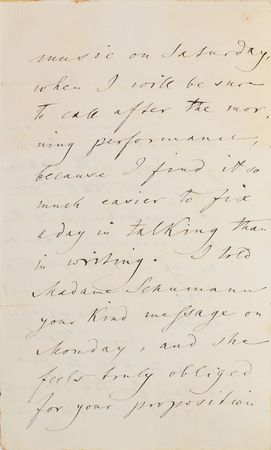 music on Saturday,
when I will be sure
to call after the mor-
ning performance,
because I find it so
much easier to fix
a day in talking than
in writing. I told
Madame Schumann
your kind message on
Monday, and she
feels truly obliged
for your proposition